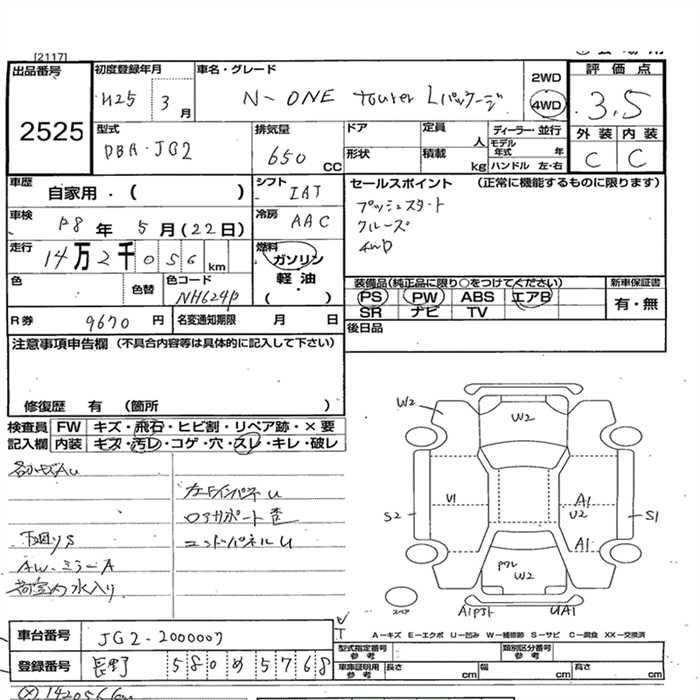 [2117]
出品番号
2525
初度登録年月
H25 3 月
車名・グレード
N-ONE tourer Lパッケージ
2WD
4WD
評価点
3.5
外装 内装
C C
型式
DBA-JG2
排気量
650 CC
ドア
形状
定員 人
積載 kg
ディーラー・並行
モデル年式 年
ハンドル 左・右
車歴
自家用・( )
シフト
IAT
セールスポイント (正常に機能するものに限ります)
プッシュスタート
クルーズ
4WD
車検
R8 年 5 月(22日)
冷房
AAC
走行
14万2千056 km
燃料
ガソリン
軽油
( )
色
色替
色コード
NH624P
装備品(純正品に限り○をつけてください)
PS PW ABS エアB
SR ナビ TV
新車保証書
有・無
R券 9670 円
名変通知期限 月 日
後日品
注意事項申告欄(不具合内容等は具体的に記入して下さい)
修復歴 有 (箇所 )
検査員記入欄
FW キズ・飛石・ヒビ割・リペア跡・×要
内装 キズ・汚レ・コゲ・穴・スレ・キレ・破レ
下回りS
AW・ミラーA
荷室内水入り
左FインパネU
コアサポート歪
エンドパネルU
W2
W2
U1
A1
U2
S2
S1
A1
W2
スペア
A1
UA1
A-キズ E-エクボ U-凹み W-補修跡 S-サビ C-腐食 XX-交換済
車台番号 JG2-2000007
登録番号 長野 580 め 5768
型式指定番号 参考
類別区分番号 参考
車庫証明用 参考
長さ cm
幅 cm
高さ cm
142056km